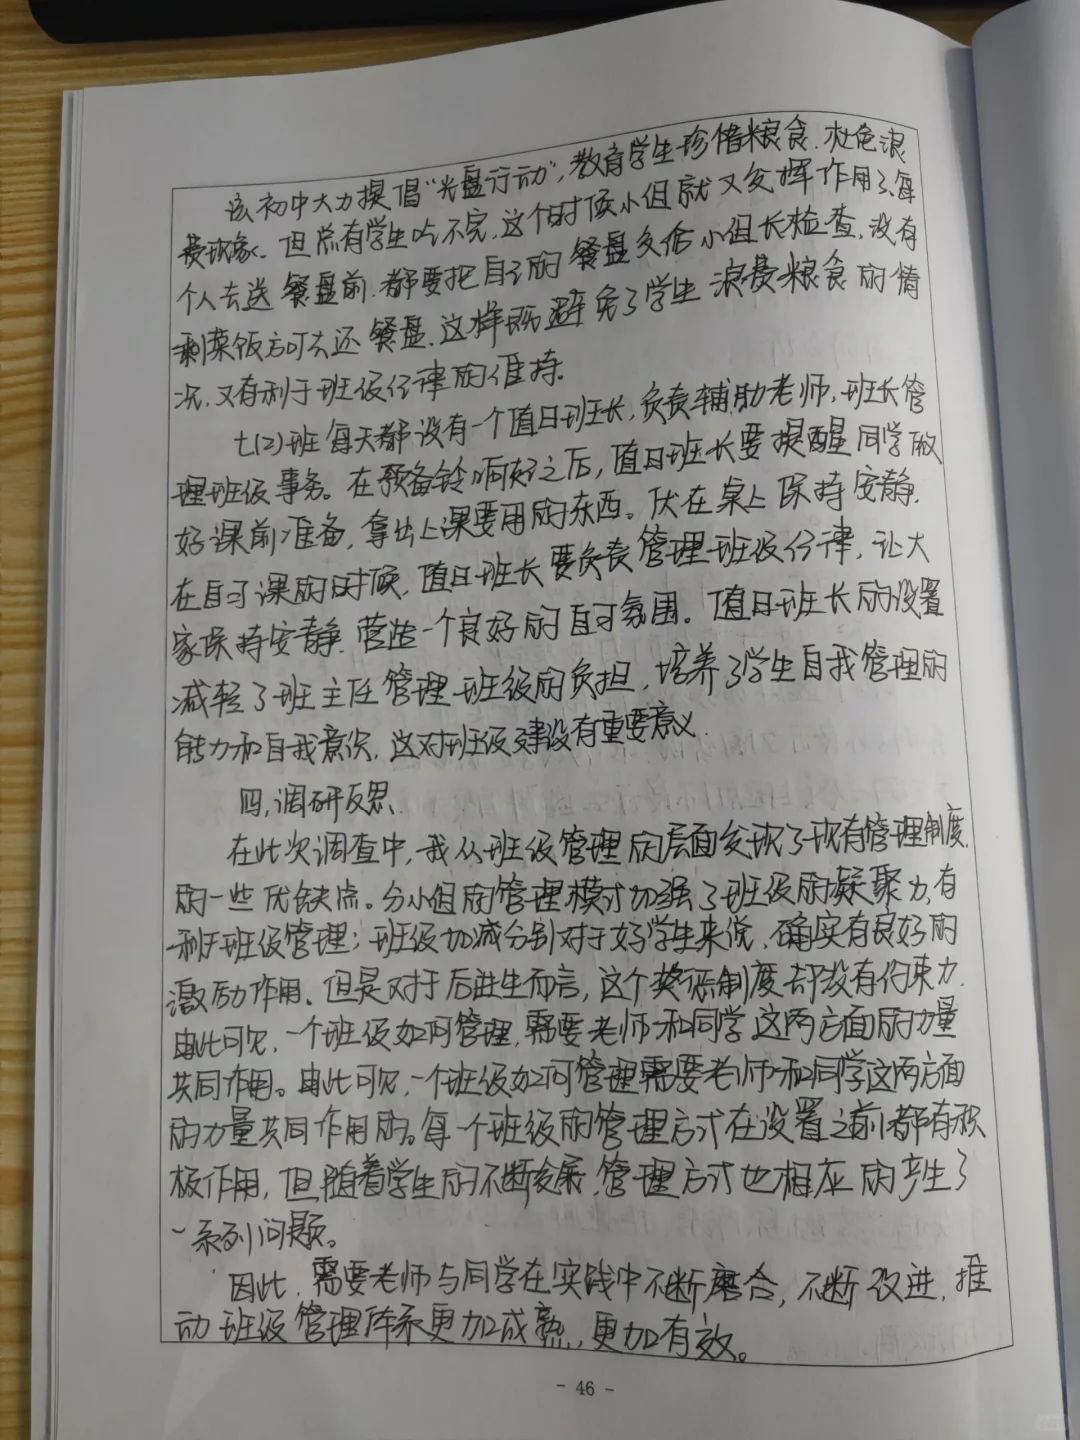 该初中大力提倡“光盘行动”，教育学生珍惜粮食，杜绝浪
费现象。但总有学生吃不完，这个时候小组就又发挥作用了，每
个人去送餐盘前，都要把自己的餐盘交给小组长检查，没有
剩菜饭方可去还餐盘，这样既避免了学生浪费粮食的情
况，又有利于班级纪律的维持。
七(2)班每天都设有一个值日班长，负责辅助老师，班长管
理班级事务。在预备铃响好之后，值日班长要提醒同学做
好课前准备，拿出上课要用的东西。伏在桌上保持安静，
在自习课的时候，值日班长要负责管理班级纪律，让大
家保持安静，营造一个良好的自习氛围。值日班长的设置
减轻了班主任管理班级的负担，培养了学生自我管理的
能力和自我意识，这对班级建设有重要意义。
四，调研反思
在此次调查中，我从班级管理的层面发现了现有管理制度
的一些优缺点。分小组的管理模式加强了班级的凝聚力，有
利于班级管理；班级加减分别对于好学生来说，确实有良好的
激励作用，但是对于后进生而言，这个奖惩制度却没有约束力，
由此可见，一个班级如何管理，需要老师和同学这两方面的力量
共同作用。由此可见，一个班级如何管理需要老师和同学这两方面
的力量共同作用的。每一个班级的管理方式在设置之前都有积
极作用，但随着学生的不断发展，管理方式也相应的产生了
一系列问题。
因此，需要老师与同学在实践中不断磨合，不断改进，推
动班级管理体系更加成熟，更加有效。
- 46 -